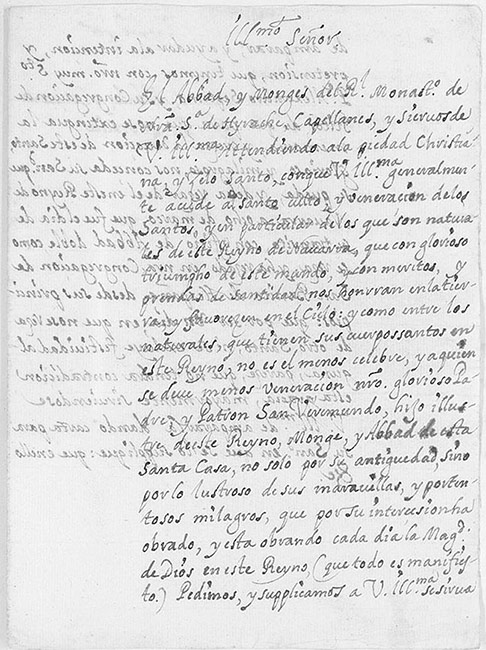 Illmo. Señor
El Abbad, y Monges del Rl. Monasto. de
Nra. Sa. de Hyrache, Capellanes, y Siervos de
V. Illma. Attendiendo a la piedad Christia
na, y zelo Santo, con que V. Illma. generalmen
te atiende al Santo culto, y veneracion de los
Santos, y en particular de los que son natura
les de este Reyno de Navarra, que con glorioso
triumpho de este mundo, y con meritos, y
prendas de santidad nos honrran en la tier
ra, y favorezen en el Cielo: y como entre los
naturales, que tienen sus cuerpos santos en
este Reyno, no es el menos celebre, y a quien
se deve menos veneracion nro. glorioso Pa
dre, y Patron San Veremundo, hijo illus
tre de este Reyno, Monge, y Abbad de esta
Santa Casa, no solo por su antiguedad, sino
por lo lustroso de sus maravillas, y porten
tosos milagros, que por su intercession ha
obrado, y esta obrando cada dia la Magd.
de Dios en este Reyno (que todo es manifies
to.) Pedimos, y supplicamos a V. Illma. se sirva